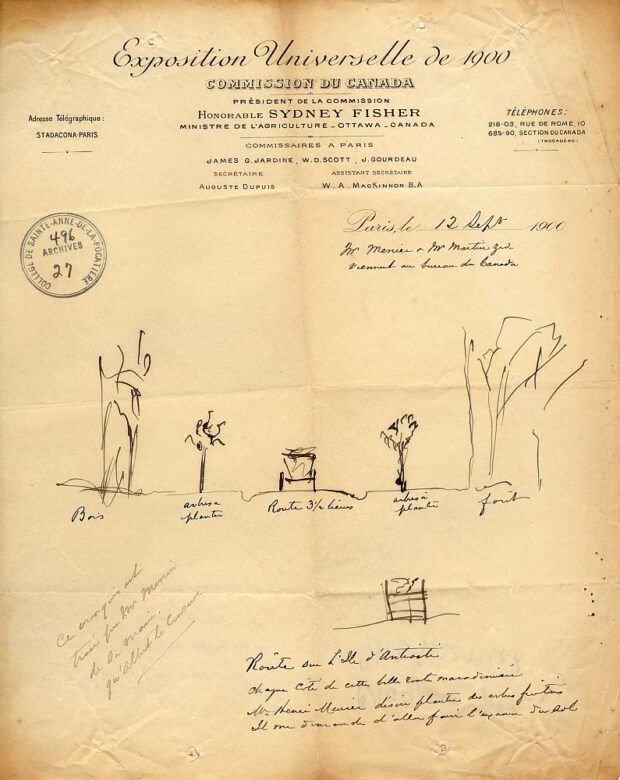 Exposition Universelle de 1900
COMMISSION DU CANADA
PRÉSIDENT DE LA COMMISSION
HONORABLE SYDNEY FISHER
MINISTRE DE L'AGRICULTURE - OTTAWA - CANADA
Adresse Télégraphique:
STADACONA-PARIS
TÉLÉPHONES:
218-03, RUE DE ROME, 10
685-90, SECTION DU CANADA
(TROCADÉRO)
COMMISSAIRES A PARIS
JAMES G. JARDINE, W.D. SCOTT, J. GOURDEAU
SECRÉTAIRE
ASSISTANT SECRÉTAIRE
AUGUSTE DUPUIS
W. A. MACKINNON B.A
COLLÈGE DE SAINTE-ANNE-DE-LA-POCATIÈRE
496
ARCHIVES
27
Paris, le 12 Sept 1900
Mr Menier & Mr Martin
viennent au bureau du Canada
Bois
arbres à
planter
Route 3½ lieues
arbres à
planter
forêt
Ce croquis est
tracé par Mr Menier
de sa main
Route sur L'Ile d'Anticosti
chaque côté de cette belle route macadamisée
Mr Henri Menier désire planter des arbres fruitiers
Il me demande d'aller faire l'examen du sol